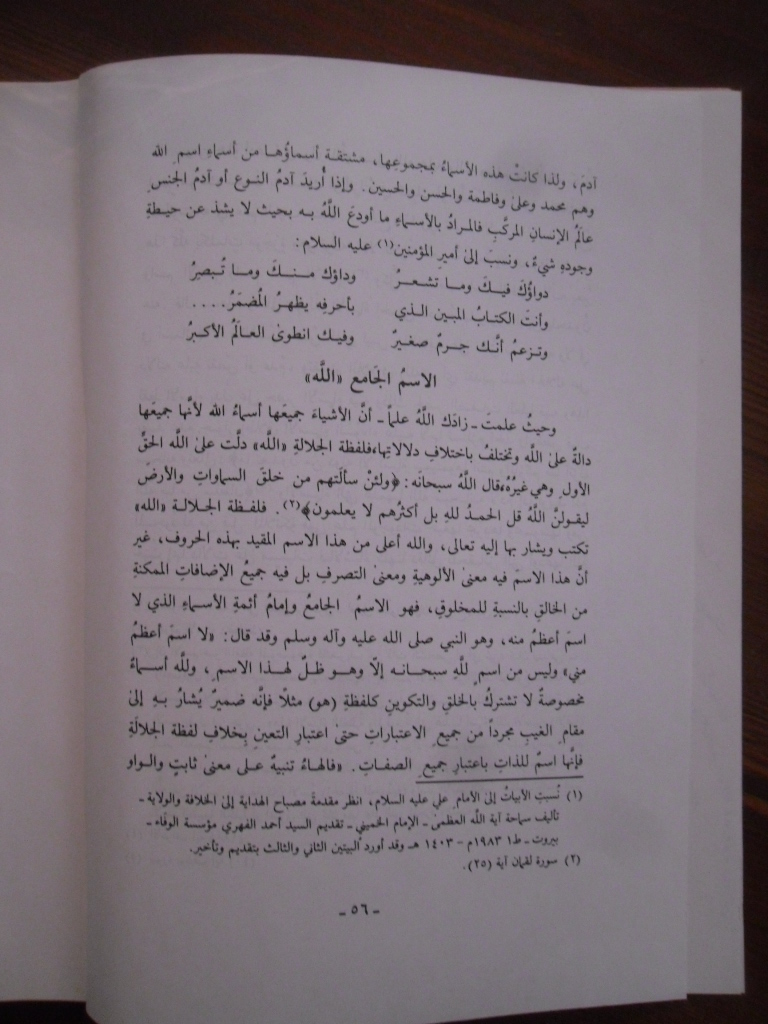 آدمَ، ولذا كانتْ هذه الأسماءُ بمجموعِها، مشتقة أسماؤُها من أسماءِ اسمِ الله
وهم محمد وعلىٰ وفاطمة والحسن والحسين. وإذا أُريدَ آدمُ النوع أو آدمُ الجنسِ
عالَمُ الإنسانِ المركَّبِ فالمرادُ بالأسماءِ ما أودعَ اللَّهُ به بحيث لا يشذ عن حيطةِ
وجودِهِ شيءٌ، ونسبَ إلىٰ أميرِ المؤمنين(١) عليه السلام:
دواؤكَ فيكَ وما تشعرُ وداؤك منكَ وما تُبصِرُ
وأنتَ الكتابُ المبين الذي بأحرفِه يظهرُ المُضمَرُ....
وتزعمُ أنَّك جرمٌ صغيرٌ وفيك انطوىٰ العالَمُ الأكبرُ
الاسمُ الجَامع «اللَّه»
وحيثُ علمتَ - زادَك اللَّهُ علماً - أنَّ الأشياءَ جميعَها أسماءُ الله لأنَّها جميعَها
دالةٌ علىٰ اللَّه وتختلفُ باختلافِ دلالاتِها،فلفظةُ الجلالةِ «اللَّه» دلَّت علىٰ اللَّه الحقِّ
الأولِ وهي غيرُهُ،قال اللَّهُ سبحانَه: ﴿ولئنْ سألتَهم من خلقَ السماواتِ والأرضَ
ليقولنَّ اللَّهُ قل الحمدُ للهِ بل أكثرُهم لا يعلمون﴾(٢). فلفظة الجلالة «الله»
تكتب ويشار بها إليه تعالى، والله أعلى من هذا الاسم المقيد بهذه الحروف، غير
أنَّ هذا الاسمَ فيه معنىٰ الألوهيةِ ومعنىٰ التصرفِ بل فيه جميعُ الإضافاتِ الممكنةِ
من الخالقِ بالنسبةِ للمخلوقِ، فهو الاسمُ الجامعُ وإمامُ أئمةِ الأسماءِ الذي لا
اسمَ أعظمُ منه، وهو النبي صلى الله عليه وآله وسلم وقد قال: «لا اسمَ أعظمُ
مني» وليس من اسمٍ للَّهِ سبحانه إلّا وهو ظلٌ لهذا الاسمِ، وللَّه أسماءٌ
مخصوصةٌ لا تشتركُ بالخلقِ والتكوينِ كلفظةِ (هو) مثلًا فإنَّه ضميرٌ يُشارُ بهِ إلىٰ
مقامِ الغيبِ مجرداً من جميعِ الاعتباراتِ حتىٰ اعتبارِ التعينِ بِخلافِ لفظة الجلالَةِ
فإنَّها اسمٌ للذاتِ باعتبارِ جميعِ الصفاتِ. «فالهاءُ تنبيهٌ على معنىٰ ثابتٍ والواو
(١) نُسبتِ الأبياتُ إلى الأمامِ عليٍ عليه السلام، انظر مقدمةَ مصباح الهداية إلى الخلافة والولاية -
تأليف سماحة آية اللَّه العظمىٰ - الإمام الخميني - تقديم السيد أحمد الفهري مؤسسة الوفاء -
بيروت - ط١ ١٩٨٣م - ١٤٠٣ هـ وقد أورد البيتين الثاني والثالث بتقديم وتأخير.
(٢) سورة لقمان آية (٢٥).
- ٥٦ -